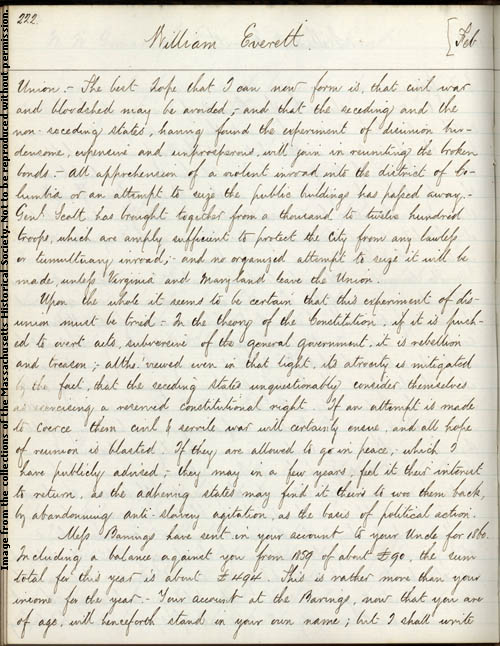 222.
William Everett
[Feb
Union. - The best hope that I can now form is, that civil war
and bloodshed may be avoided, and that the seceding and the
non-seceding states, having found the experiment of disunion bur-
densome, expensive and unprosperous, will join in reuniting the broken
bonds. - All apprehension of a violent inroad into the district of Co-
lumbia or an attempt to seize the public buildings has passed away. -
Genl. Scott has brought together from a thousand to twelve hundred
troops, which are amply sufficient to protect the City from any lawless
or tumultuary inroad; - and no organized attempt to seize it will be
made, unless Virginia and Maryland leave the Union.
Upon the whole it seems to be certain that this experiment of dis-
union must be tried - In the theory of the Constitution, if it is push-
ed to overt acts, subversive of the general government, it is rebellion
and treason; - altho' viewed even in that light, its atrocity is mitigated
by the fact, that the seceding states unquestionably consider themselves
as exercising a reserved constitutional right. If an attempt is made
to coerce them civil & servile war will certainly ensue, and all hope
of reunion is blasted. If they are allowed to go in peace, which I
have publicly advised, - they may in a few years, feel it their interest
to return, as the adhering states may find it theirs to woo them back,
by abandoning anti-slavery agitation, as the basis of political action.
Mess Barings have sent in your account to your Uncle for 1860.
Including a balance against you from 1859 of about £90, the sum
total for this year is about £494. This is rather more than your
income for the year. - Your account at the Barings, now that you are
of age, will henceforth stand in your own name; but I shall write
Image from the collections of the Massachusetts Historical Society. Not to be reproduced without permission.